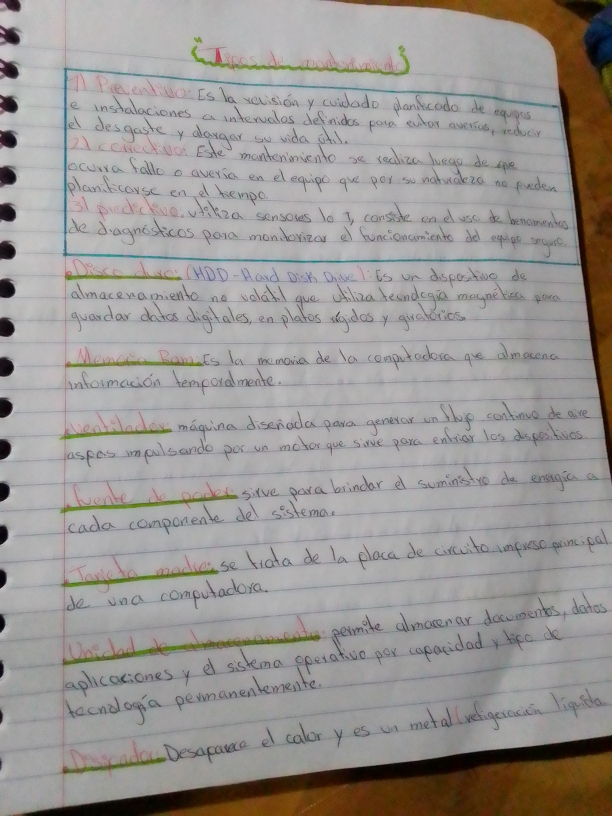 "Tipos de mantenimiento"
1) Preventivo: Es la revisión y cuidado planificado de equipos
e instalaciones a intervalos definidos para evitar averías, reducir
el desgaste y alargar su vida útil.
2) correctivo: Este mantenimiento se realiza luego de que
ocurra fallo o avería en el equipo que por su naturaleza no pueden
planificarse en el tiempo
3) predictivo. utiliza sensores Io T, consiste en el uso de
de diagnósticos para monitorizar el funcionamiento del equipo
Disco duro: (HDD-Hard Disk Drive): Es un dispositivo de
almacenamiento no volátil que utiliza tecnología magnética para
guardar datos digitales, en platos rígidos y giratorios
Memoria Ram: Es la memoria de la computadora que almacena
información temporalmente.
Ventilador: máquina diseñada para generar un flujo continuo de aire
aspas impulsando por un motor que sirve para enfriar los dispositivos
fuente de poder sirve para brindar el suministro de energía a
cada componente del sistema.
Tarjeta madre: se trata de la placa de circuito impreso principal
de una computadora.
Unidad de almacenamiento: permite almacenar documentos, datos
aplicaciones y el sistema operativo por capacidad y tipo de
tecnología permanentemente.
Disipador: Desaparece el calor y es un metal (refrigeración líquida